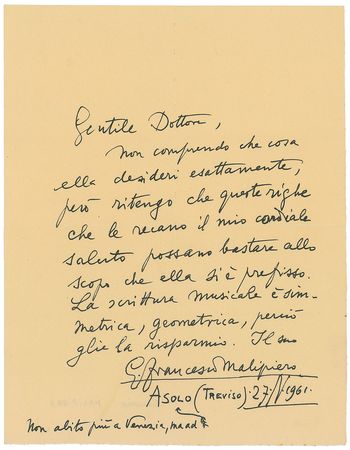 Gentile Dottore,
non comprendo che cosa
ella desideri esattamente,
però ritengo che queste righe
che le recano il mio cordiale
saluto possano bastare allo
scopo che ella si è prefisso.
La scrittura musicale è sim-
metrica, geometrica, perciò
glie la risparmio. Il suo
G. Francesco Malipiero
Asolo (Treviso) 27. 1961.
Non abito più a Venezia, ma ad